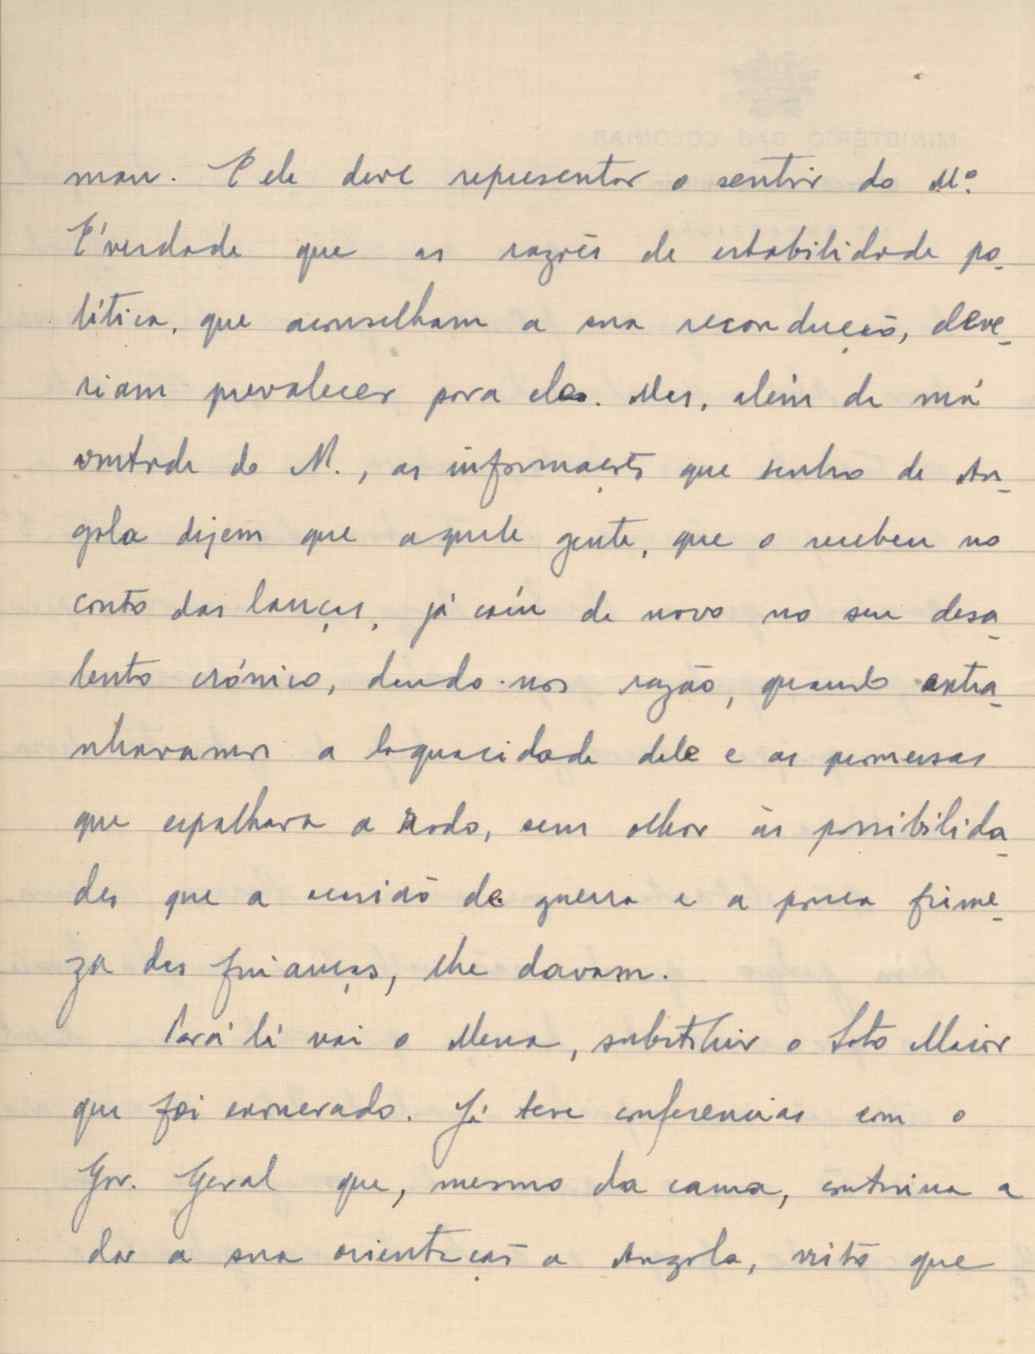 mau. E ele deve representar o sentir do Mº.
É verdade que as razões de estabilidade po-
lítica, que aconselham a sua recondução, deve-
riam prevalecer para eles. Mas, além da má
vontade do M., as informações que tenho de An-
gola dizem que aquela gente, que o recebeu no
conto das lanças, já caíu de novo no seu desa-
lento crónico, dando-nos razão, quando extra-
nhavamos a loquacidade dele e as promessas
que espalhava a rodo, sem olhar às possibilida-
des que a ocasião de guerra e a pouca firme-
za das finanças, lhe davam.
Para lá vai o Mena, substituir o Soto Maior
que foi exonerado. Já teve conferencias com o
Gov. Geral que, mesmo da cama, continua a
dar a sua orientação a Angola, visto que
MINISTÉRIO DAS COLONIAS